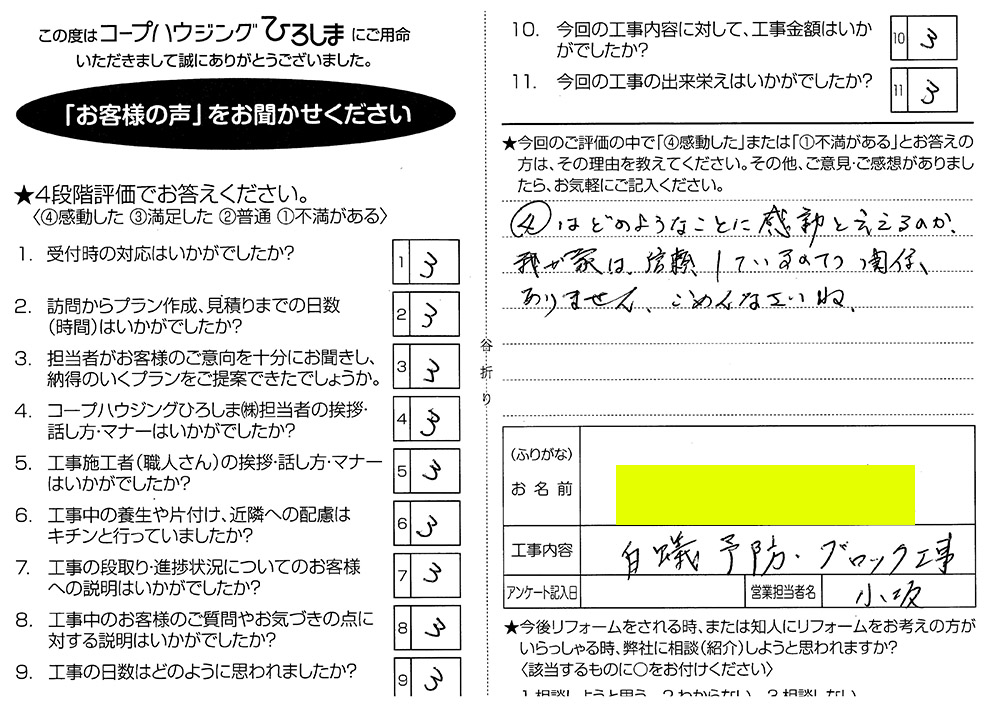 この度はコープハウジングひろしまにご用命
いただきまして誠にありがとうございました。
「お客様の声」をお聞かせください
★4段階評価でお答えください。
〈④感動した ③満足した ②普通 ①不満がある〉
1. 受付時の対応はいかがでしたか?
1 3
2. 訪問からプラン作成、見積りまでの日数
（時間）はいかがでしたか?
2 3
3. 担当者がお客様のご意向を十分にお聞きし、
納得のいくプランをご提案できたでしょうか。
3 3
4. コープハウジングひろしま㈱担当者の挨拶・
話し方・マナーはいかがでしたか?
4 3
5. 工事施工者（職人さん）の挨拶・話し方・マナー
はいかがでしたか?
5 3
6. 工事中の養生や片付け、近隣への配慮は
キチンと行っていましたか?
6 3
7. 工事の段取り・進捗状況についてのお客様
への説明はいかがでしたか?
7 3
8. 工事中のお客様のご質問やお気づきの点に
対する説明はいかがでしたか?
8 3
9. 工事の日数はどのように思われましたか?
9 3
谷折り
10. 今回の工事内容に対して、工事金額はいか
がでしたか?
10 3
11. 今回の工事の出来栄えはいかがでしたか?
11 3
★今回のご評価の中で「④感動した」または「①不満がある」とお答えの
方は、その理由を教えてください。その他、ご意見・ご感想がありまし
たら、お気軽にご記入ください。
④はどのようなことに感動と言えるのか、
我が家は、信頼しているので関係、
ありません、ごめんなさいね、
（ふりがな）
お名前
工事内容
白蟻予防・ブロック工事
アンケート記入日
営業担当者名
小坂
★今後リフォームをされる時、または知人にリフォームをお考えの方が
いらっしゃる時、弊社に相談（紹介）しようと思われますか?
〈該当するものに○をお付けください〉
1.相談しようと思う 2.わからない 3.相談しない